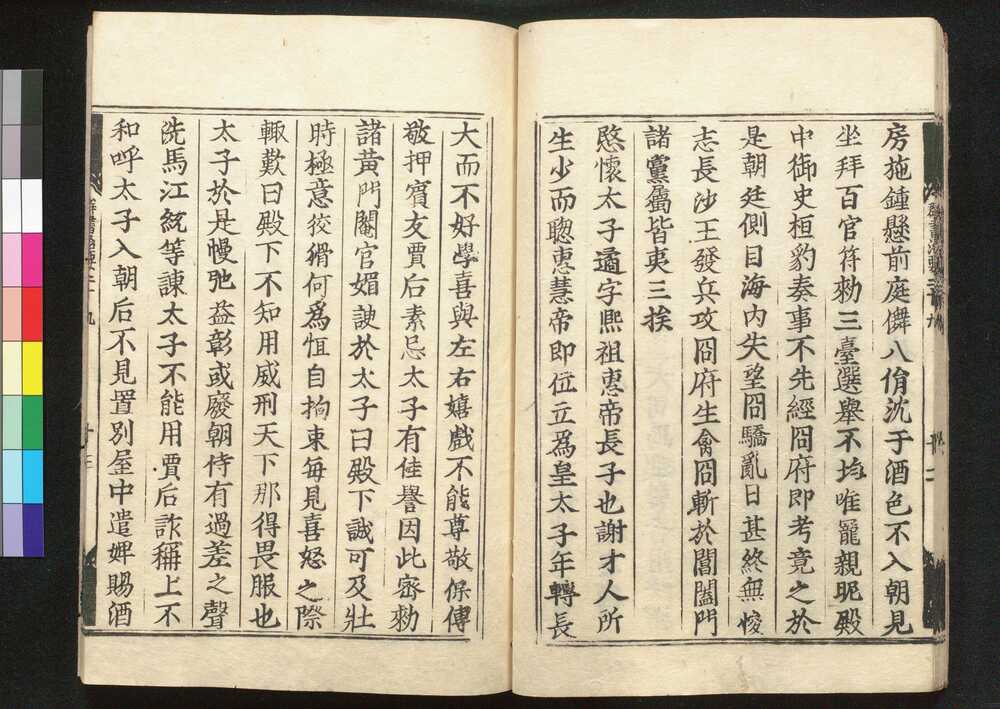 房施鍾懸前庭儛八佾沈于酒色不入朝見
坐拜百官符勑三臺選舉不均唯寵親昵殿
中御史桓豹奏事不先經冏府即考竟之於
是朝廷側目海內失望冏驕亂日甚終無悛
志長沙王發兵攻冏府生禽冏斬於閶闔門
諸黨屬皆夷三挨
愍懷太子遹字熙祖惠帝長子也謝才人所
生少而聰惠慧帝即位立爲皇太子年轉長
大而不好學喜與左右嬉戲不能尊敬保傅
敬押賓友賈后素忌太子有佳譽因此密勑
諸黃門閹官媚諛於太子曰殿下誠可及壯
時極意忲猾何爲恒自拘束每見喜怒之際
輙歎曰殿下不知用威刑天下那得畏服也
太子於是慢弛益彰或廢朝侍有過差之聲
洗馬江統等諫太子不能用賈后詐稱上不
和呼太子入朝后不見置別屋中遣婢賜酒
群書治要二十九